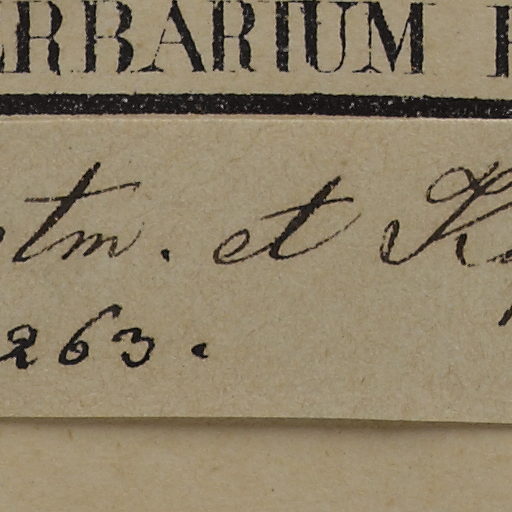 ERBARIUM
tm. et K
263.